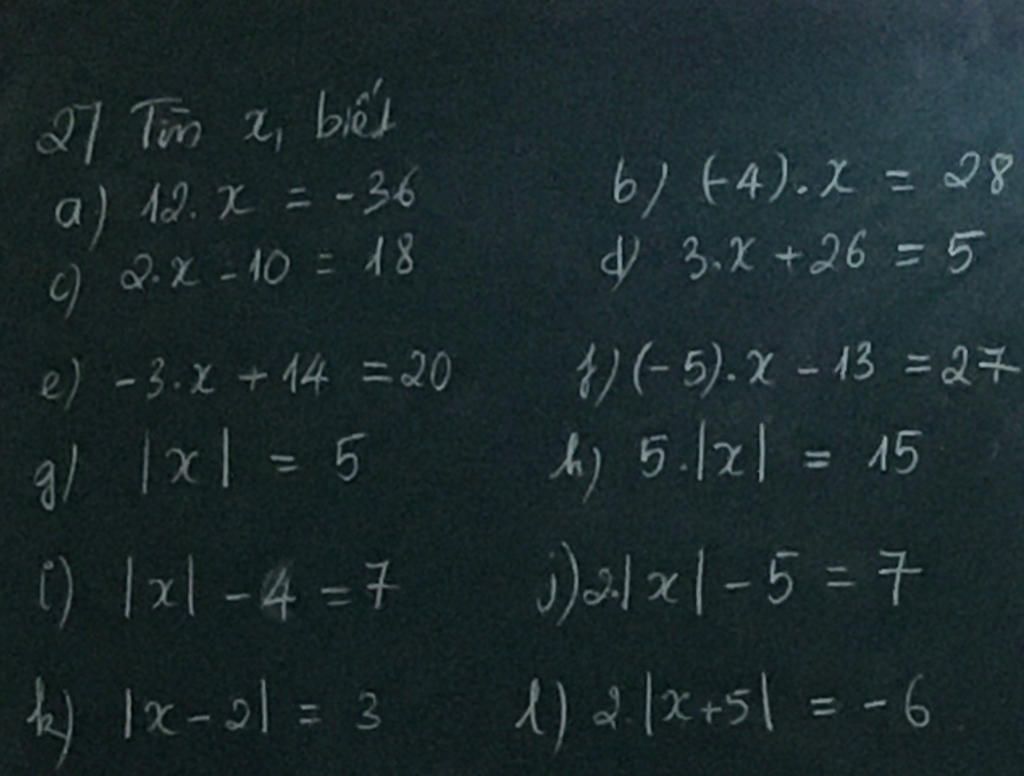 27 Tìm x, biết
a) 12.x = -36 b) (-4).x = 28
c) 2.x - 10 = 18 d) 3.x + 26 = 5
e) -3.x + 14 = 20 f) (-5).x - 13 = 27
g) |x| = 5 h) 5.|x| = 15
i) |x| - 4 = 7 j) 2.|x| - 5 = 7
k) |x - 2| = 3 l) 2.|x+5| = -6